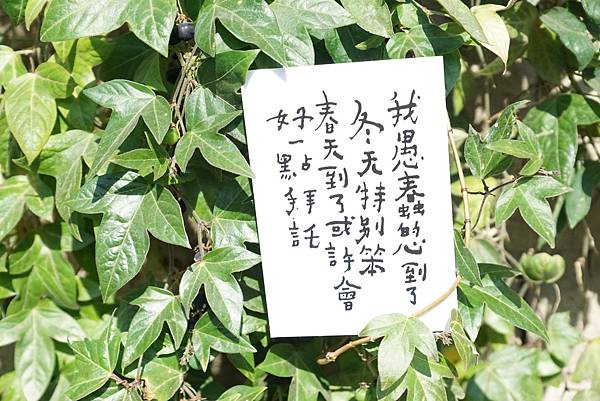 我愚蠢的心到了
冬天特別笨
春天到了或許會
好一點拜託
好黑手記